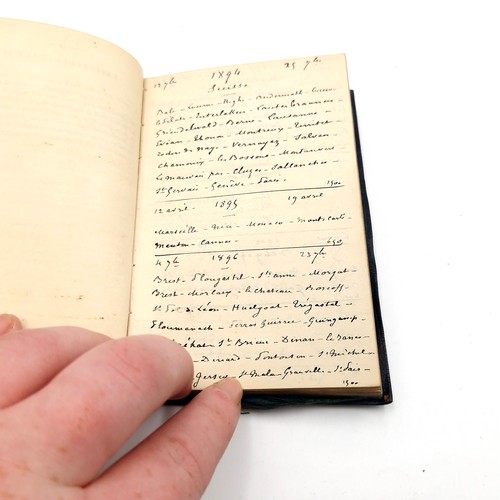 13 7bre 1894 25 7bre
Suisse
Bale - Lucerne - Righi - Andermatt -
Interlaken - Lauterbrunnen -
Grindelwald - Berne - Lausanne -
Evian - Thonon - Montreux - Territet -
Rocher de Naye - Vernayaz - Salvan -
Chamonix - les Bossons - Montanvers
Le mauvais pas - Cluses - Sallanches -
St Gervais - Genève - Paris.
1500
12 avril - 1895 19 avril
Marseille - Nice - Monaco - Monte Carlo -
Menton - Cannes -
650
4 7bre 1896 23 7bre
Brest - Plougastel - Ste anne - Morgat -
Brest - Morlaix - le chateau - Roscoff -
St Pol de Léon - Huelgoat - Trégastel -
Ploumanach - Perros Guirrec - Guingamp -
St Brieuc - Dinan - la Rance -
Dinard - Pontorson - St Michel -
Jersey - St Malo - Granville - St Pair -
1500